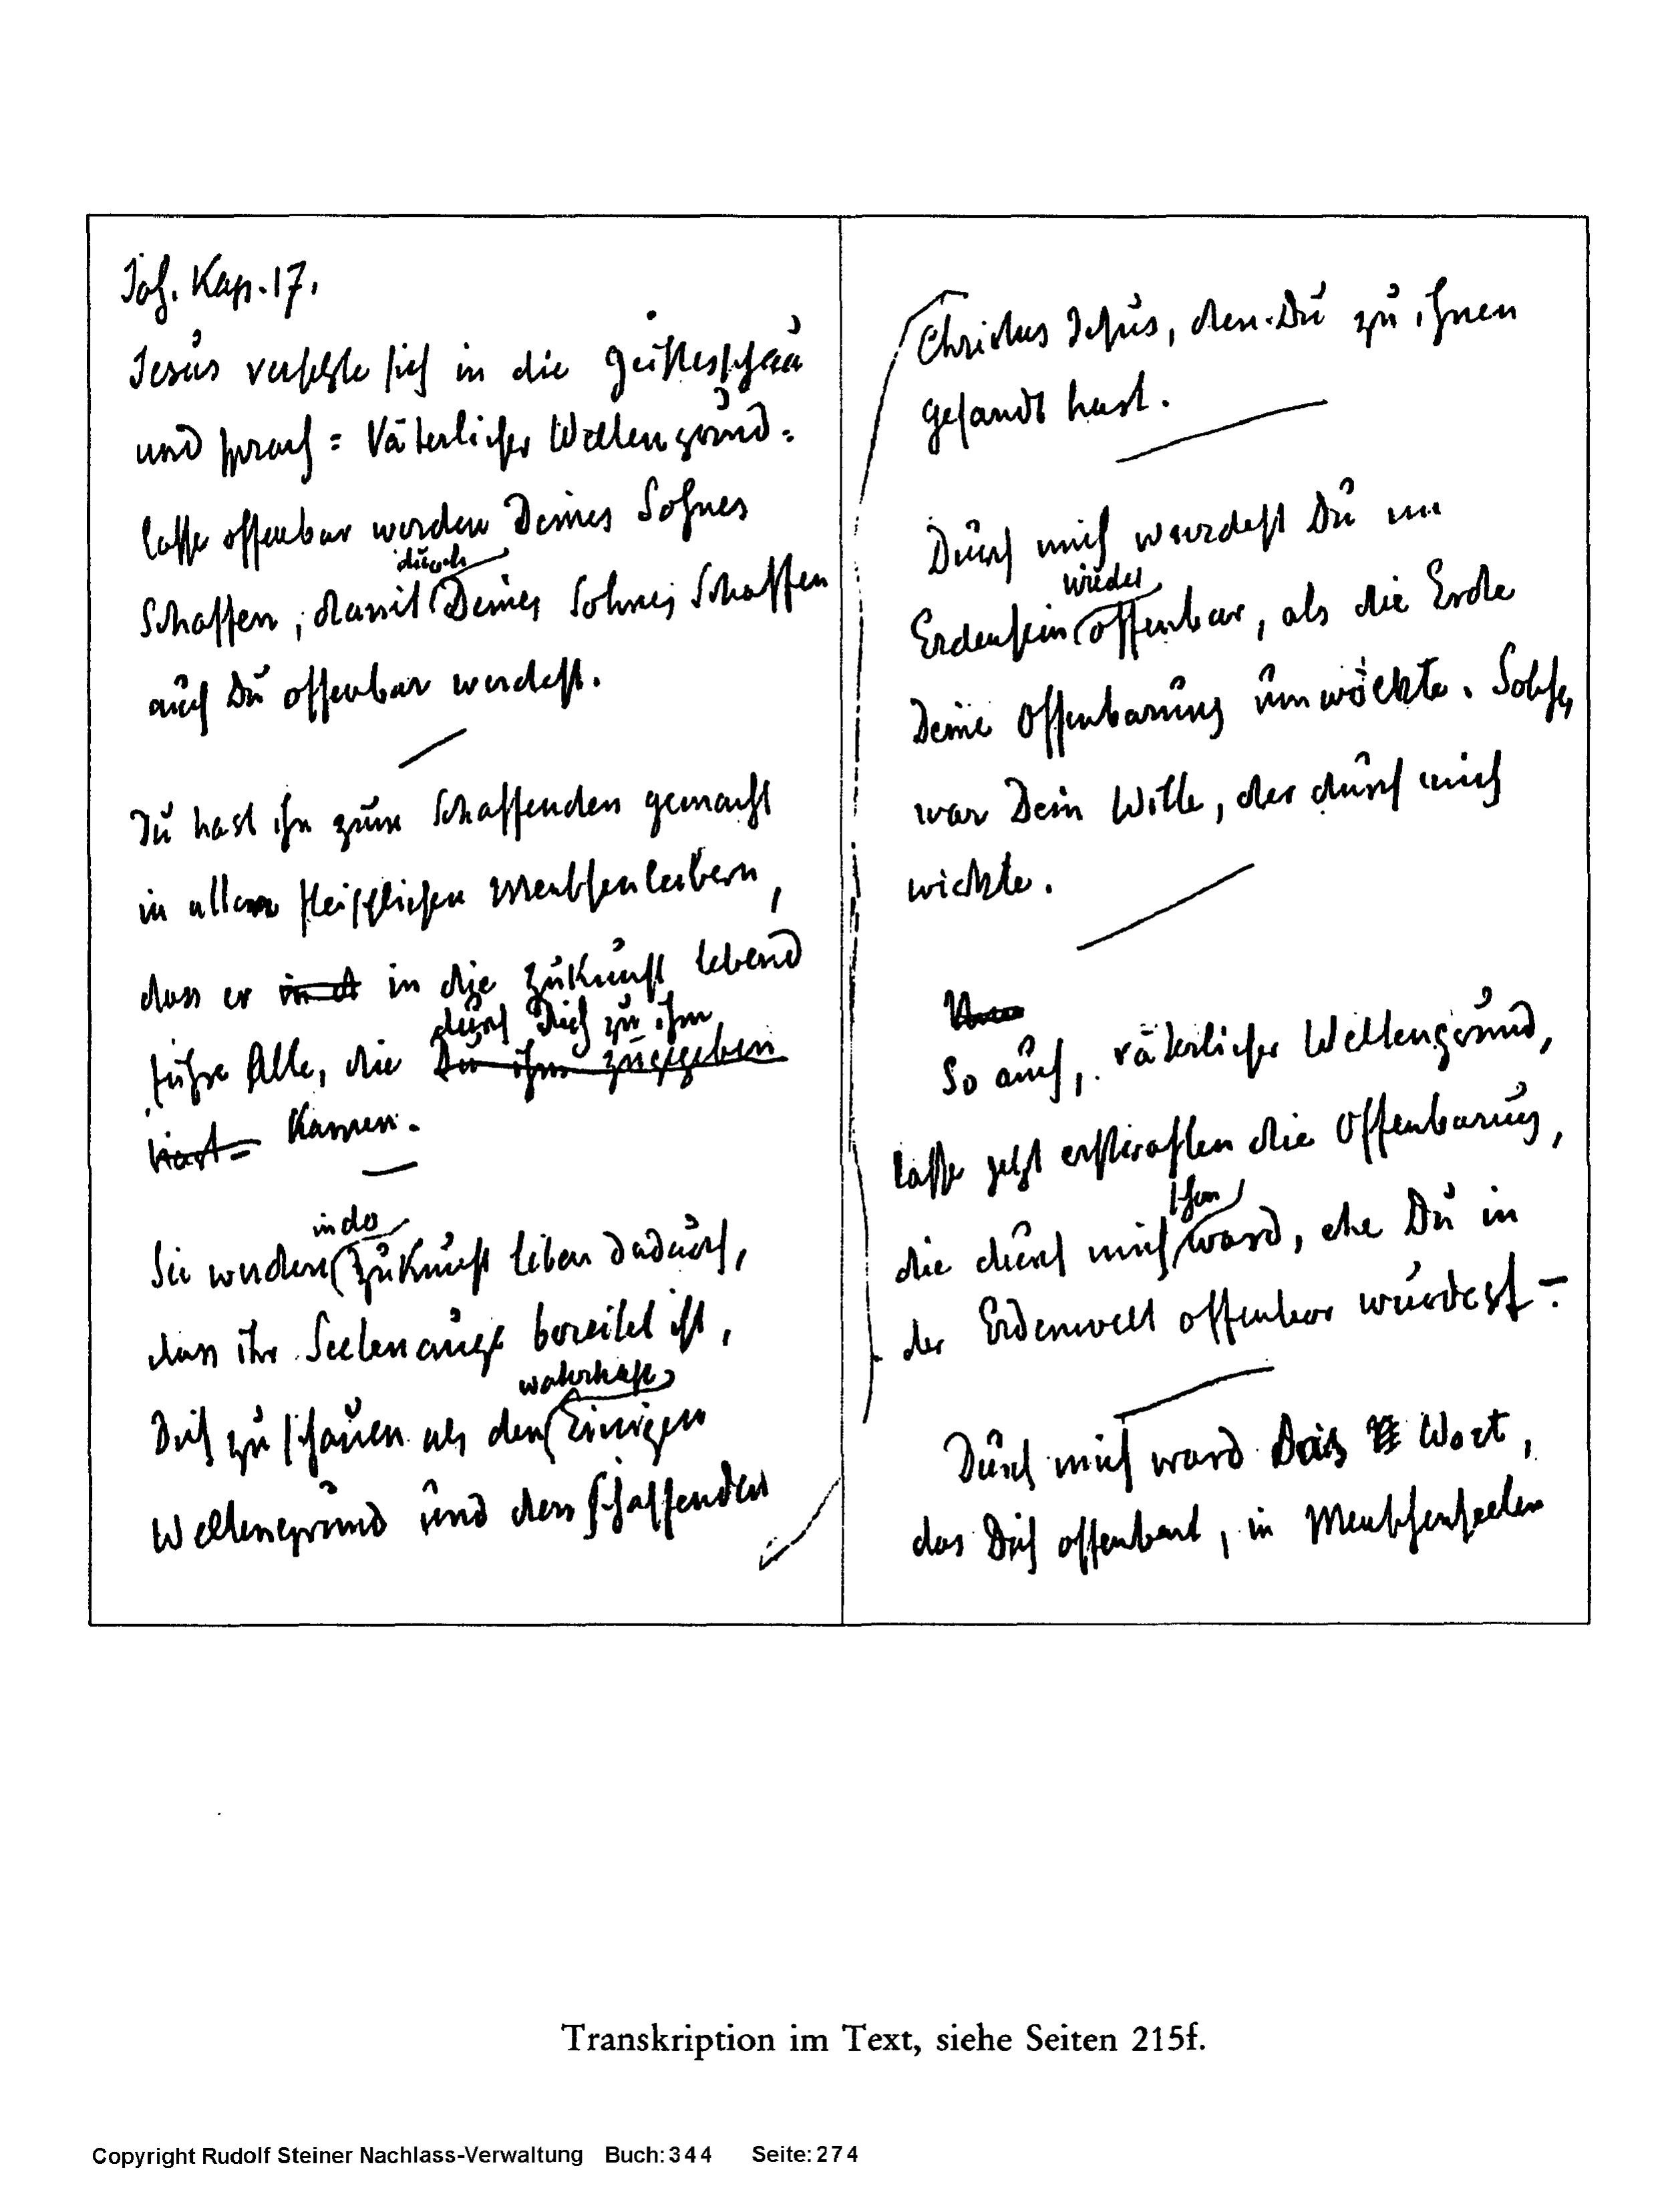 Joh. Kap. 17.
Jesus versetzte sich in die Geistesschau
und sprach: Väterlicher Weltengrund:
lasse offenbar werden Deines Sohnes
durch
Schaffen, damit Deines Sohnes Schaffen
auch Du offenbar werdest.
Du hast ihn zum Schaffenden gemacht
in allen fleischlichen Menschenleibern,
dass er in die Zukunft lebend
durch Dich zu ihm
führe Alle, die Du ihm zugegeben
hast kamen.
in der
Sie werden Zukunft leben dadurch,
dass ihr Seelenauge bereitet ist,
wahrhaft
Dich zu schauen als den Einigen
Weltengrund und den schaffenden
Christus Jesus, den Du zu ihnen
gesandt hast.
Durch mich wurdest Du im
wieder
Erdensein offenbar, als die Erde
Deine Offenbarung umwölkte. Solches
war Dein Wille, der durch mich
wirkte.
So auch, väterlicher Weltengrund,
lasse jetzt erstrahlen die Offenbarung,
schon
die durch mich ward, ehe Du in
der Erdenwelt offenbar wurdest
Durch mich ward Das Wort,
das Dich offenbart, in Menschenseelen
Transkription im Text, siehe Seiten 215f.
Copyright Rudolf Steiner Nachlass-Verwaltung Buch: 344 Seite: 274